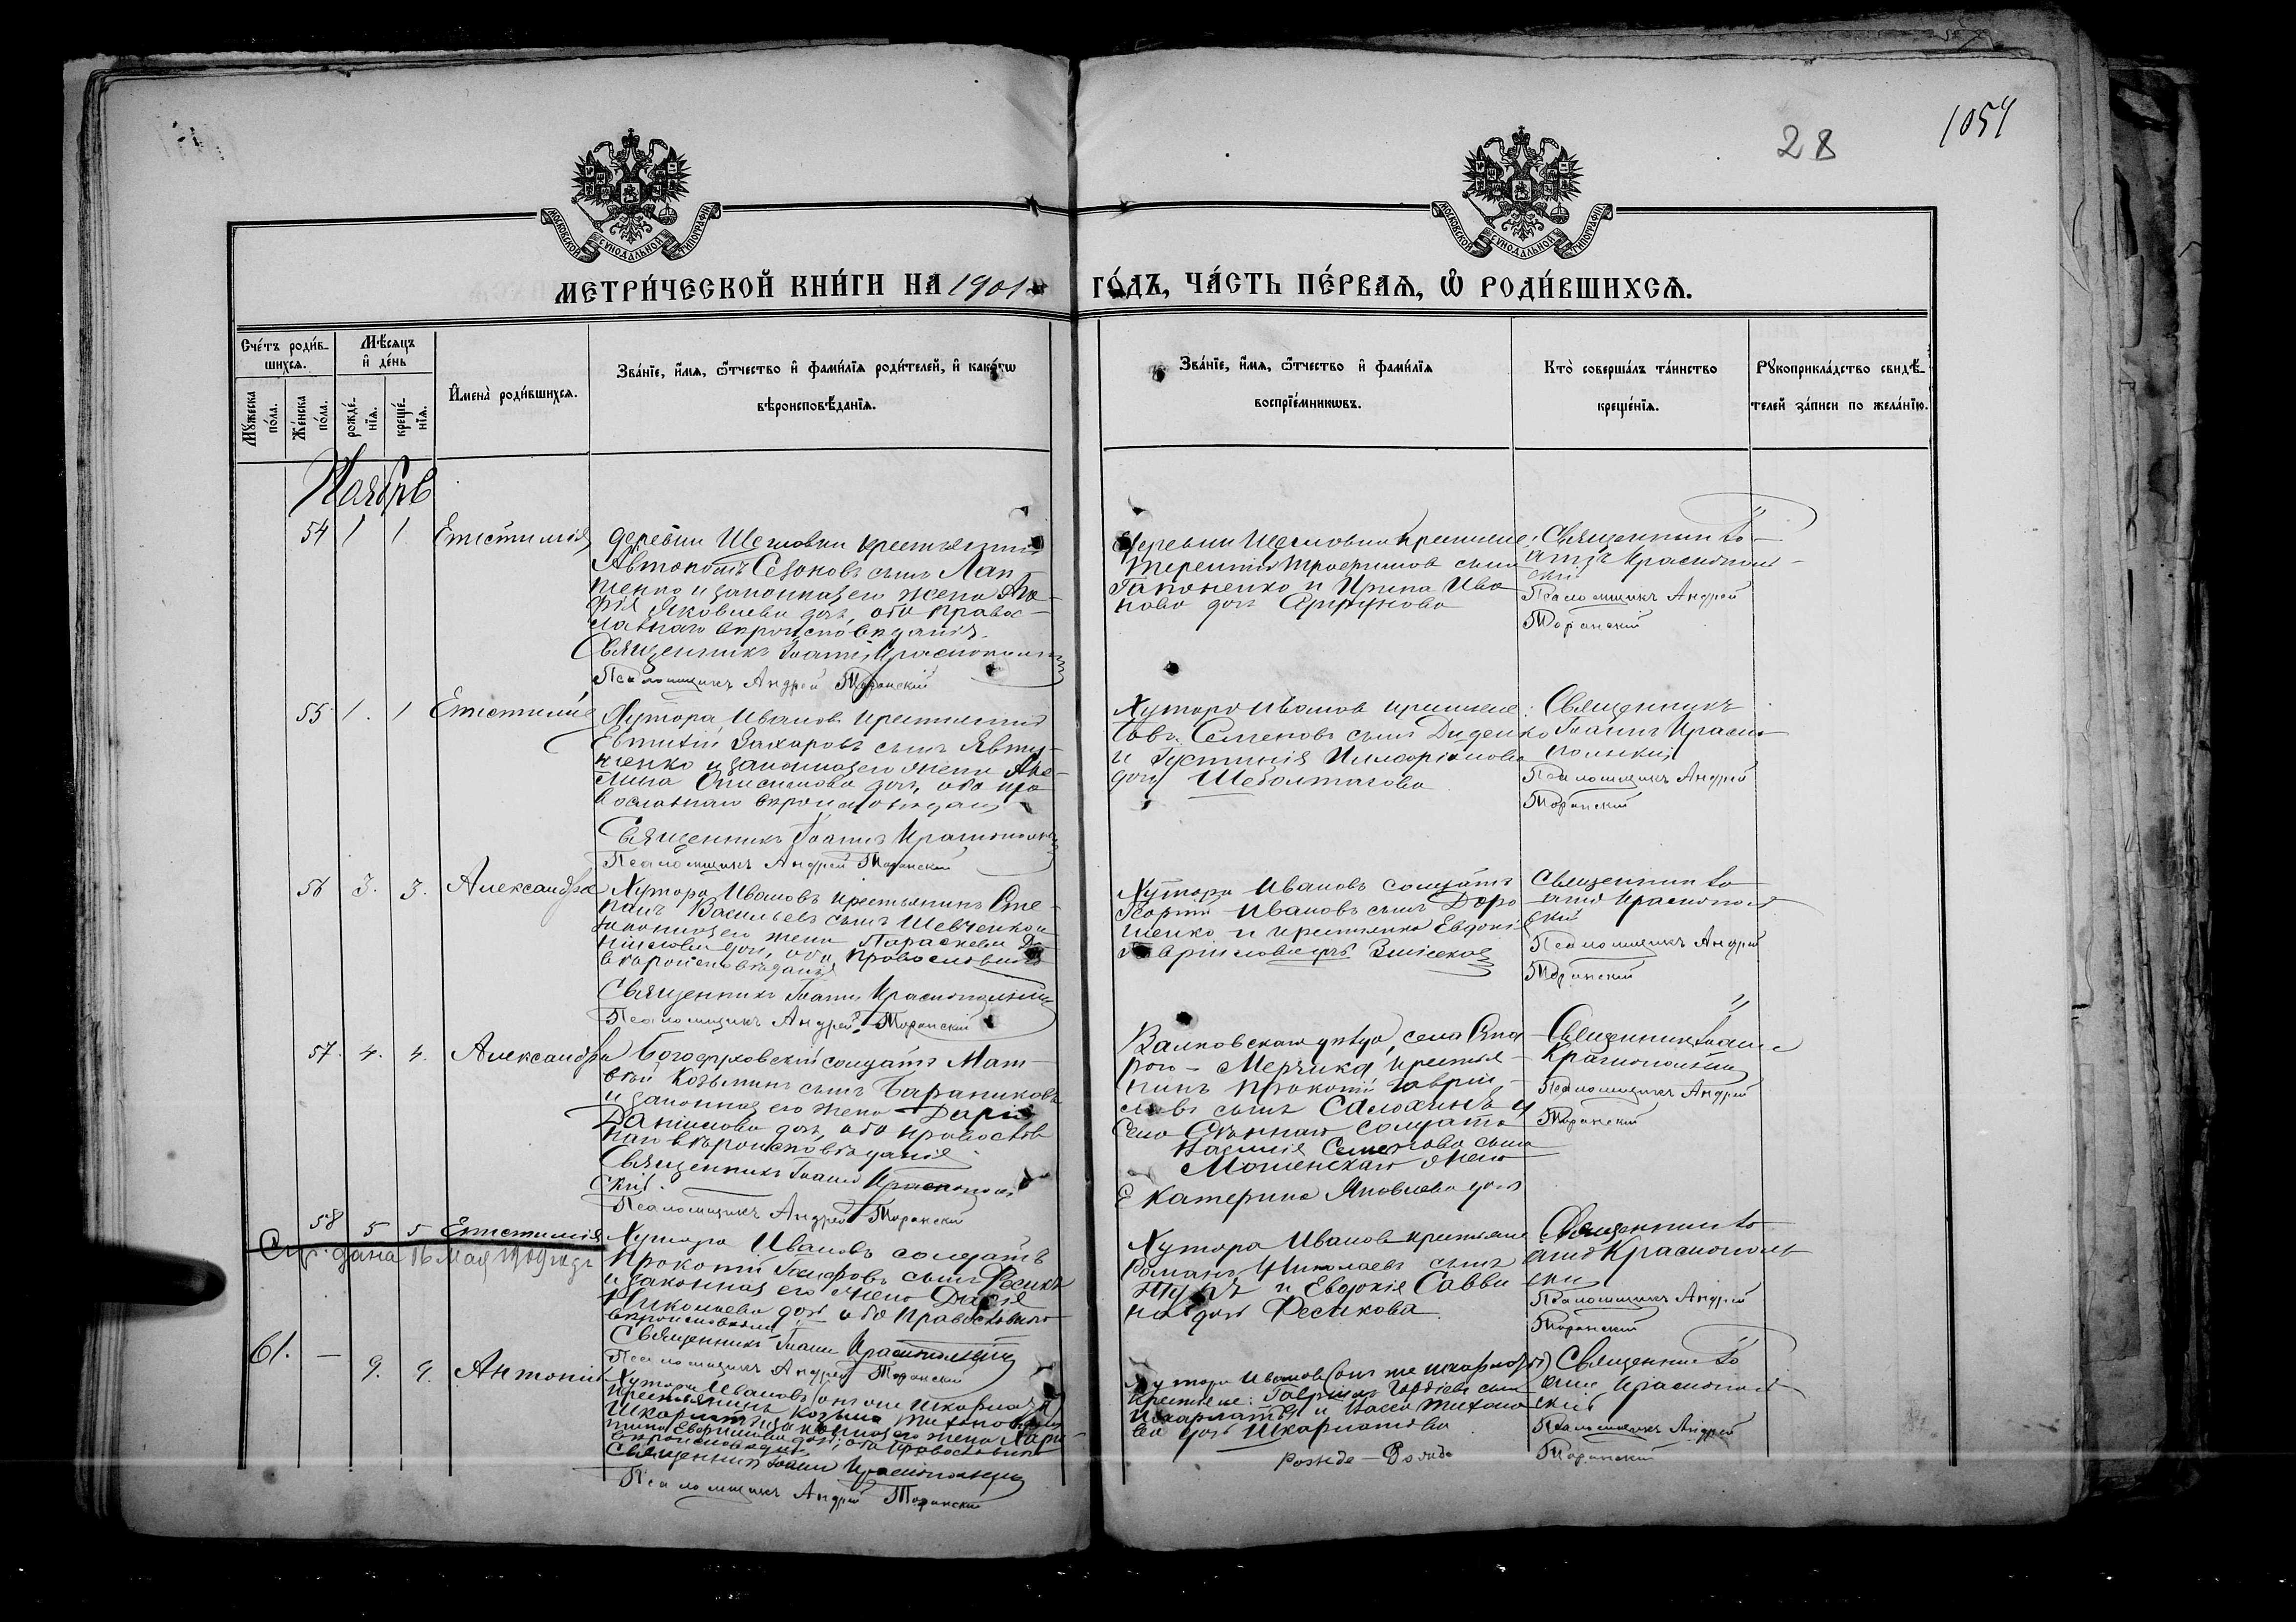 28
1054
МОСКОВСКОЙ СѴНОДАЛЬНОЙ ТИПОГРАФІИ
МОСКОВСКОЙ СѴНОДАЛЬНОЙ ТИПОГРАФІИ
МЕТРИ́ЧЕСКОЙ КНИ́ГИ НА 1901 ГО́ДЪ, ЧА́СТЬ ПЕ́РВАѦ, Ѽ РОДИ́ВШИХСѦ.
Сче́тъ роди́в-
шихсѧ.
Мꙋ́жеска по́ла.
Же́нска по́ла.
Мѣ́сѧцъ
и҆ де́нь
рожде́-
нїѧ.
креще́-
нїѧ.
И҆мена̀ роди́вшихсѧ.
Зва́нїе, и҆́мѧ, ѻ҆́тчество и҆ фами́лїѧ роди́телей, и҆ како́гѡ
вѣроисповѣ́данїѧ.
Зва́нїе, и҆́мѧ, ѻ҆́тчество и҆ фами́лїѧ
воспрїе́мникѡвъ.
Кто̀ соверша́лъ та́инство
креще́нїѧ.
Рꙋкоприкла́дство свидѣ́-
телей за́писи по жела́нїю.
Ноябрь
54 1 1 Епистимія
деревни
Автономъ сынъ Лап-
тенко и законная его жена
Яковлева дочь, оба правос-
лавнаго вѣроисповѣданія.
Священникъ Іоаннъ Краснопольскій
Псаломщикъ Андрей Торанскій
деревни
Терентій Трофимовъ сынъ
Гапоненко и Ирина Ива-
нова дочь
Священникъ Іо-
аннъ Краснополь-
скій
Псаломщикъ Андрей
Торанскій
55 1. 1 Епистимія
Хутора Иванова крестьянинъ
Евтихій Захаровъ сынъ Явту-
шенко и законная его жена Аке-
лина Онисимова дочь, оба пра-
вославнаго вѣроисповѣданія
Священникъ Іоаннъ Краснопольскій
Псаломщикъ Андрей Торанскій
Хутора Иванова
Семеновъ сынъ Диденко
и Густинія Илларіонова
дочь
Священникъ
Іоаннъ Красно-
польскій
Псаломщикъ Андрей
Торанскій
56 3. 3. Александра
Хутора Иванова крестьянинъ Сте-
панъ Васильевъ сынъ Шевченко и
законная его жена Параскева Да-
ніилова дочь, оба православнаго
вѣроисповѣданія
Священникъ Іоаннъ Краснопольскій
Псаломщикъ Андрей Торанскій
Хутора Иванова солдатъ
Георгій Ивановъ сынъ Доро-
шенко и крестьянка Евдокія
Гавріилова дочь
Священникъ Іо-
аннъ Краснополь-
скій
Псаломщикъ Андрей
Торанскій
57. 4. 4. Александра
Богодуховскій солдатъ Мат-
вѣй Козьминъ сынъ Бараниковъ
и законная его жена Дарія
Даніилова дочь, оба православ-
наго вѣроисповѣданія
Священникъ Іоаннъ Краснополь-
скій.
Псаломщикъ Андрей Торанскій
Валковскаго уѣзда, села Ста-
рого-Мерчика крестья-
нинъ Прокопій Гаврии-
ловъ сынъ Самохинъ и
села солдата
Василія Семенова сына
жена
Екатерина Яковлева дочь
Священникъ Іоаннъ
Краснопольскій
Псаломщикъ Андрей
Торанскій
58 5 5 Епистимія
дана 16 Мая 1909 года
Хутора Иванова солдатъ
Прокопій сынъ Фесикъ
и законная его жена Дарія
Николаева дочь оба православнаго
вѣроисповѣданія
Священникъ Іоаннъ Краснопольскій
Псаломщикъ Андрей Торанскій
Хутора Иванова крестьяне
Романъ Николаевъ сынъ
и Евдокія Савви-
на дочь Фесикова
Священникъ Іо-
аннъ Краснополь-
скій
Псаломщикъ Андрей
Торанскій
61. — 9. 9. Антоній
Хутора Иванова
крестьянинъ Козьма Тихоновъ
и законная его жена
вѣроисповѣданія, оба православнаго
Священникъ Іоаннъ Краснопольскій
Псаломщикъ Андрей Торанскій
Хутора Иванова (онъ же
крестьяне: Гавріилъ Гордіевъ сынъ
и Васса Тихоно-
ва дочь Шкарлатова
Священникъ Іо-
аннъ Краснополь-
скій
Псаломщикъ Андрей
Торанскій